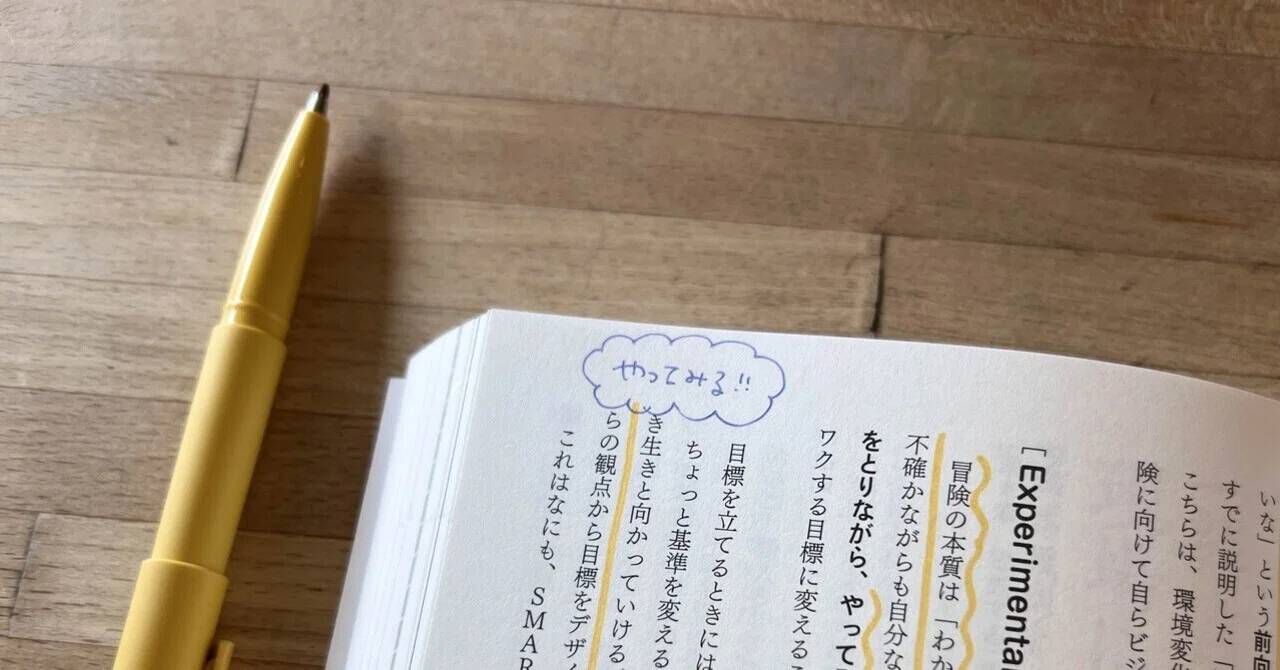 いな」という前向
すでに説明した「
こちらは、環境変化
険に向けて自らビジ
[Experimenta
冒険の本質は「わか
不確かながらも自分な
をとりながら、やって
ワクする目標に変える
目標を立てるときには
ちょっと基準を変える
き生きと向かっていける
らの観点から目標をデザイ
これはなにも、SMAR
やってみる!!